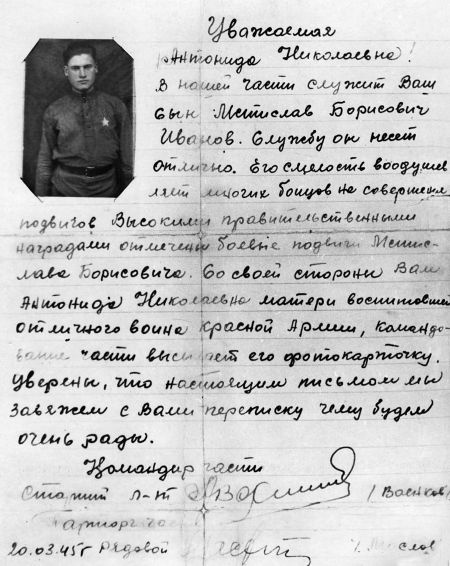 Уважаемая
Антонида Николаевна!
В нашей части служит Ваш
сын Мстислав Борисович
Иванов. Службу он несет
отлично. Его смелость воодушев
ляет многих бойцов на совершения
подвигов Высокими правительственными
наградами отмечены боевые подвиги Мстис-
лава Борисовича. Со своей стороны Вам
Антонида Николаевна матери воспитавшей
отличного воина Красной Армии, командо-
вание части высылает его фотокарточку.
Уверены, что настоящим письмом мы
завяжем с Вами переписку чему будем
очень рады.
Командир части
Старший л-нт
Парторг
20.03.45г Рядовой